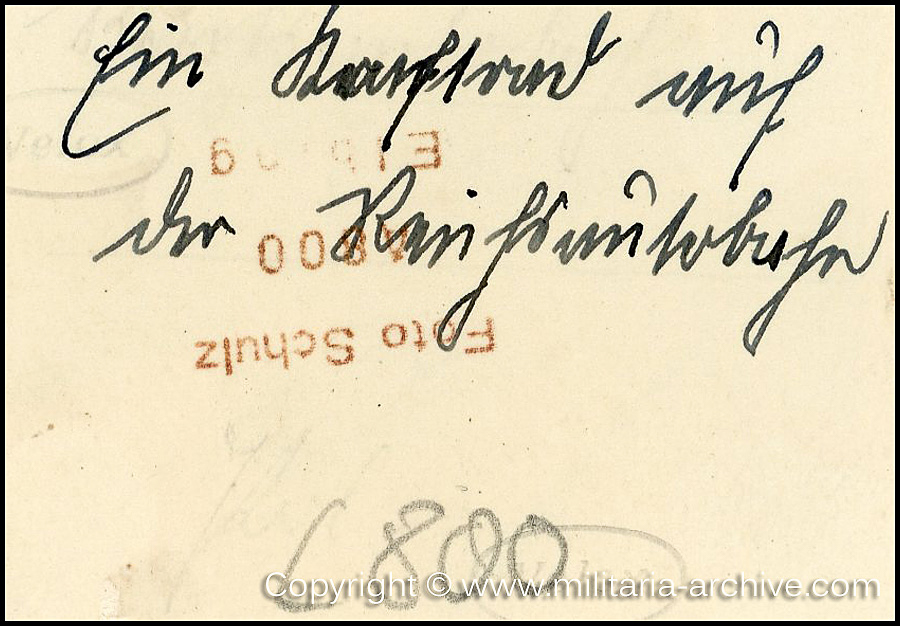 Ein Kraftrad auf
Elbing
der Reichsautobahn
4800
Foto Schulz
L 800
Copyright © www.militaria-archive.com